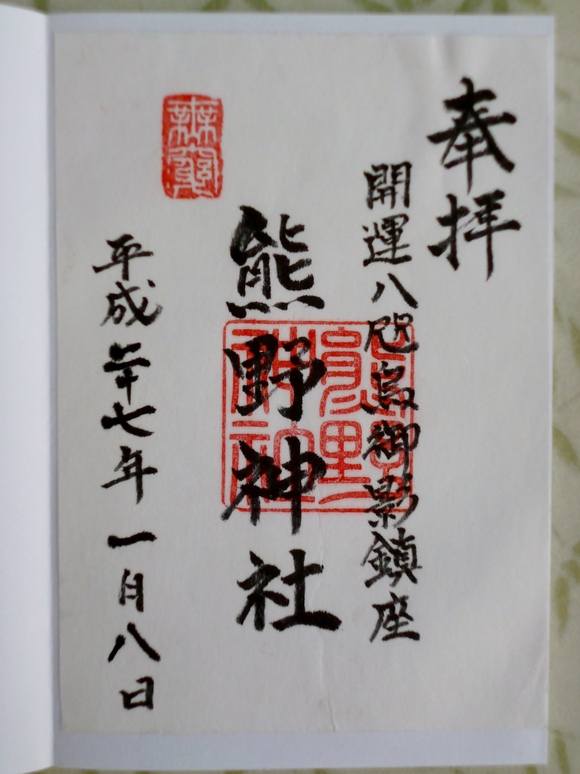 奉拝
開運八咫烏御影鎮座
熊野神社
平成二十七年一月八日